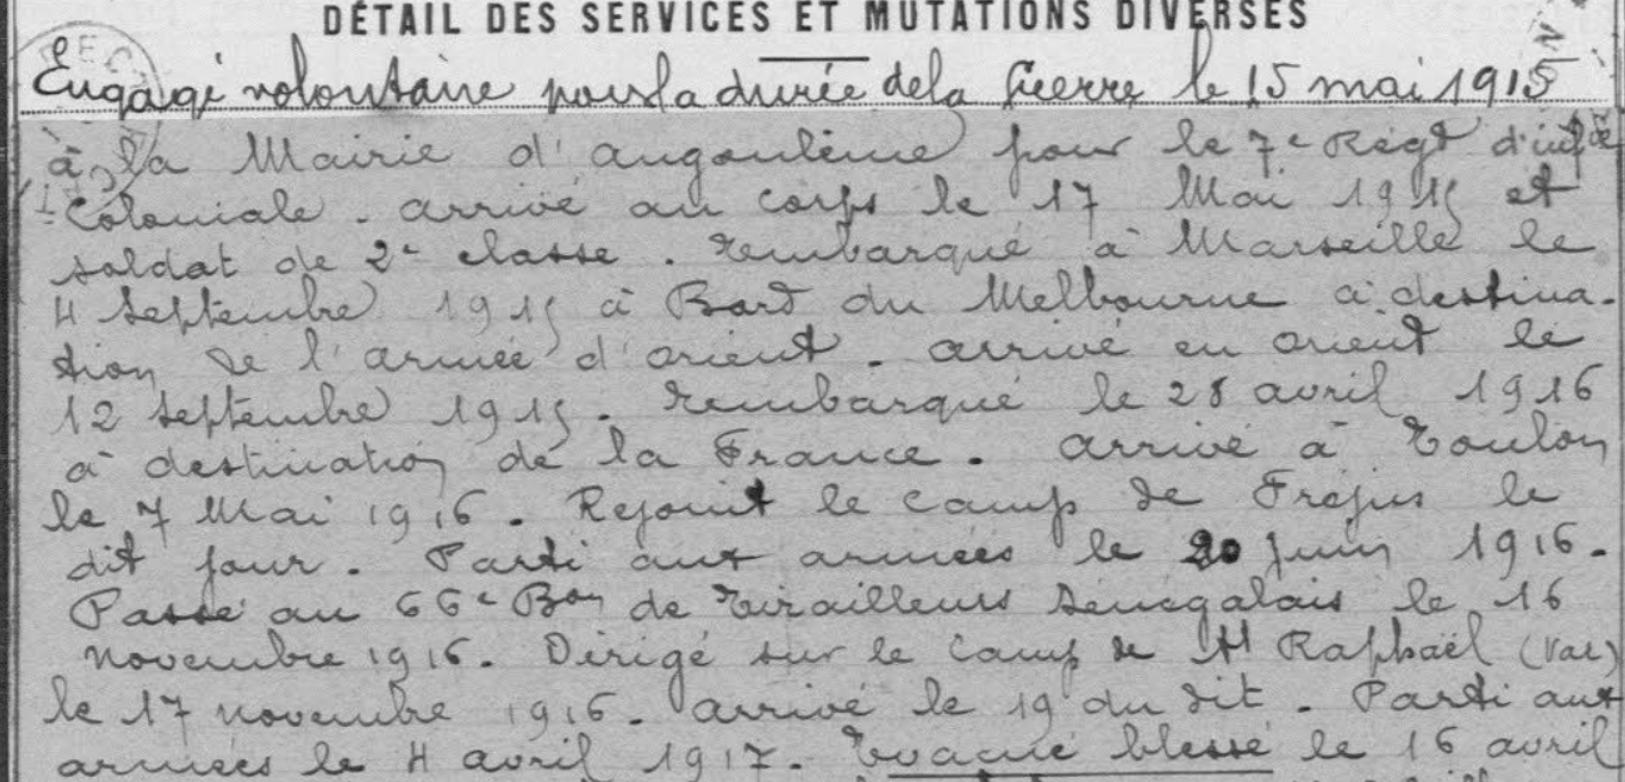 DÉTAIL DES SERVICES ET MUTATIONS DIVERSES
Engagé volontaire pour la durée de la Guerre le 15 mai 1915
à la Mairie d'angoulême pour le 7e Régt d'infie
Coloniale. arrivé au corps le 17 Mai 1915 et
soldat de 2e classe. rembarqué à Marseille le
4 Septembre 1915 à Bord du Melbourne à destina-
tion de l'armée d'orient. arrivé en orient le
12 Septembre 1915. rembarqué le 28 avril 1916
à destination de la France. arrivé à Toulon
le 7 Mai 1916. Rejoint le camp de Frejus le
dit jour. Parti aux armées le 20 juin 1916.
Passé au 66e Bon de Tirailleurs Sénégalais le 16
novembre 1916. Dirigé sur le camp de St Raphaël (Var)
le 17 novembre 1916. arrivé le 19 du dit. Parti aux
armées le 4 avril 1917. Evacué blessé le 16 avril